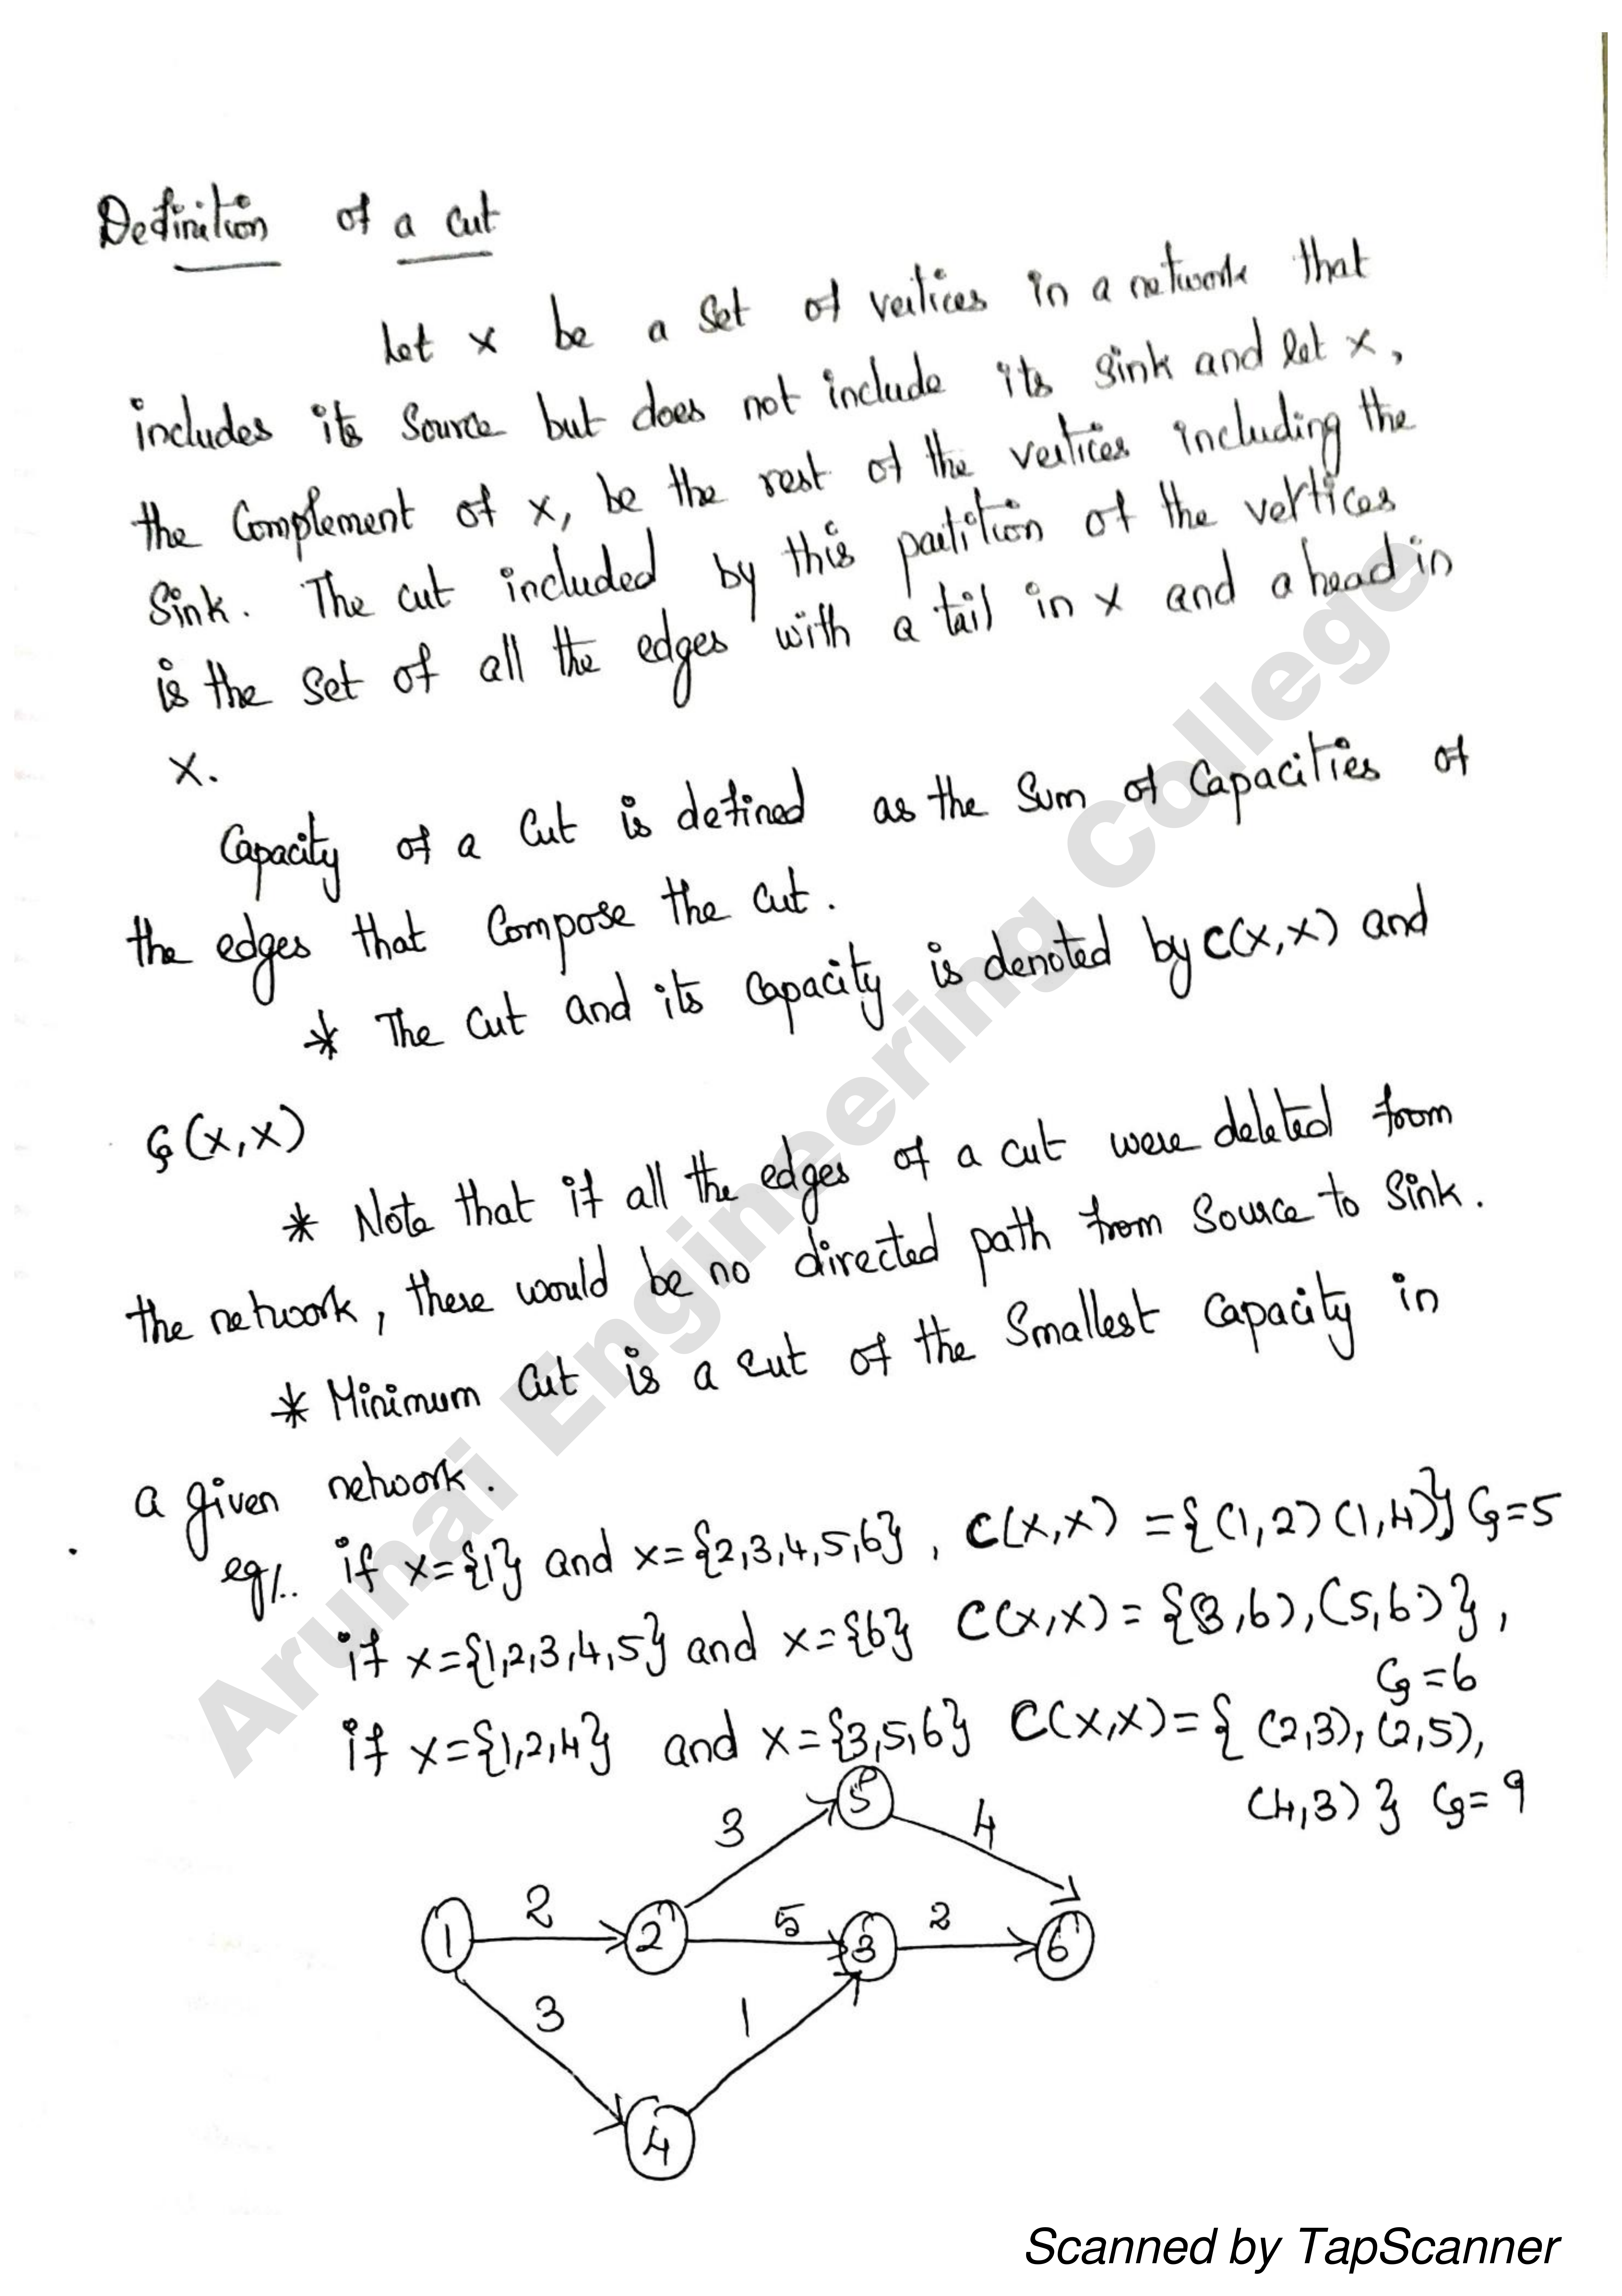 Definition of a cut
Let x be a set of vertices in a network that
includes its source but does not include its sink and let x,
the complement of x, be the rest of the vertices including the
Sink. The cut included by this partition of the vertices
is the set of all the edges with a tail in x and a head in
x.
Capacity of a cut is defined as the sum of capacities of
the edges that compose the cut.
* The cut and its capacity is denoted by C(x,x) and
G(x,x)
* Note that if all the edges of a cut were deleted from
the network, there would be no directed path from source to sink.
* Minimum cut is a cut of the smallest capacity in
a given network.
eg/. if x={1} and x={2,3,4,5,6}, C(x,x) ={(1,2)(1,4)} G=5
if x={1,2,3,4,5} and x={6} C(x,x) = {(3,6),(5,6)},
G=6
if x={1,2,4} and x={3,5,6} C(x,x)={ (2,3),(2,5),
(4,3) } G=9
5
3
4
1 2 2 5 3 2 6
3
1
4
Arunai Engineering College
Scanned by TapScanner